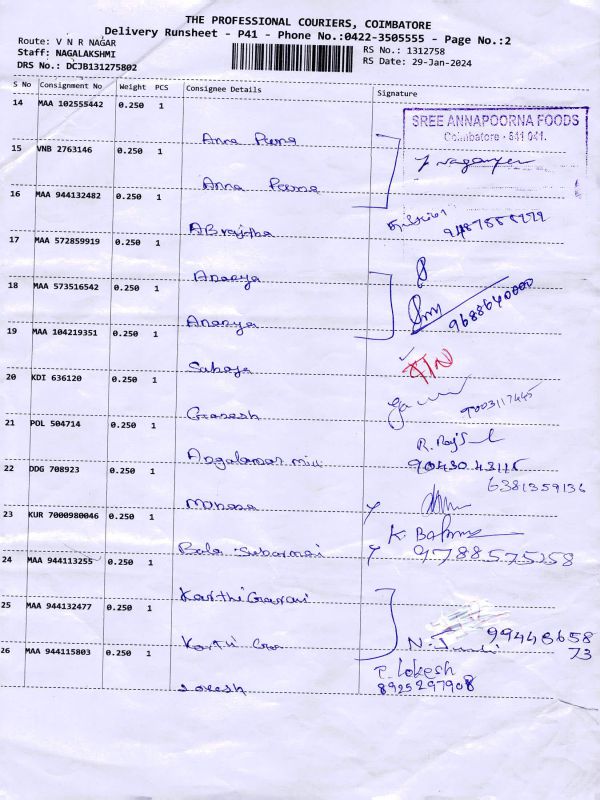 THE PROFESSIONAL COURIERS, COIMBATORE
Delivery Runsheet - P41 - Phone No.:0422-3505555 - Page No.:2
Route: V N R NAGAR
Staff: NAGALAKSHMI
DRS No.: DCJB131275802
RS No.: 1312758
RS Date: 29-Jan-2024
S No Consignment No Weight PCS Consignee Details Signature
14 MAA 102555442 0.250 1
SREE ANNAPOORNA FOODS
Coimbatore - 641 041.
Anna Purna
15 VNB 2763146 0.250 1
Anna Purna
16 MAA 944132482 0.250 1
9487555222
17 MAA 572859919 0.250 1
Ananya
18 MAA 573516542 0.250 1
Ananya
9688640000
19 MAA 104219351 0.250 1
20 KDI 636120 0.250 1
Ganesh
9003117445
21 POL 504714 0.250 1
Angalaman mill
9043043115
22 DDG 708923 0.250 1
6381359136
23 KUR 7000980046 0.250 1
Bala Subarmai
9788575258
24 MAA 944113255 0.250 1
25 MAA 944132477 0.250 1
Karthi
9944865873
26 MAA 944115803 0.250 1
P. Lokesh
8925297908
Lokesh